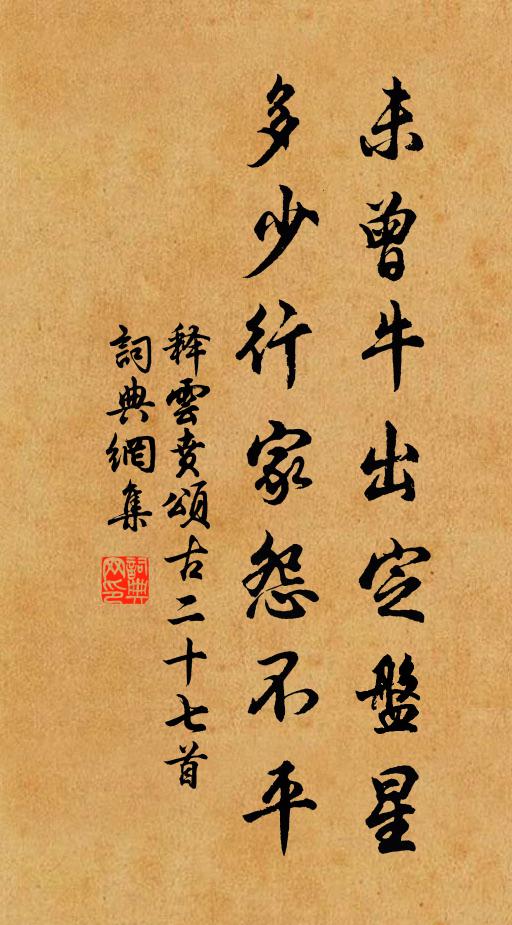 未曾牛出定盤星
多少行家怨不平
釋雲賁頌古二十七首
詞典網集
詞典网印